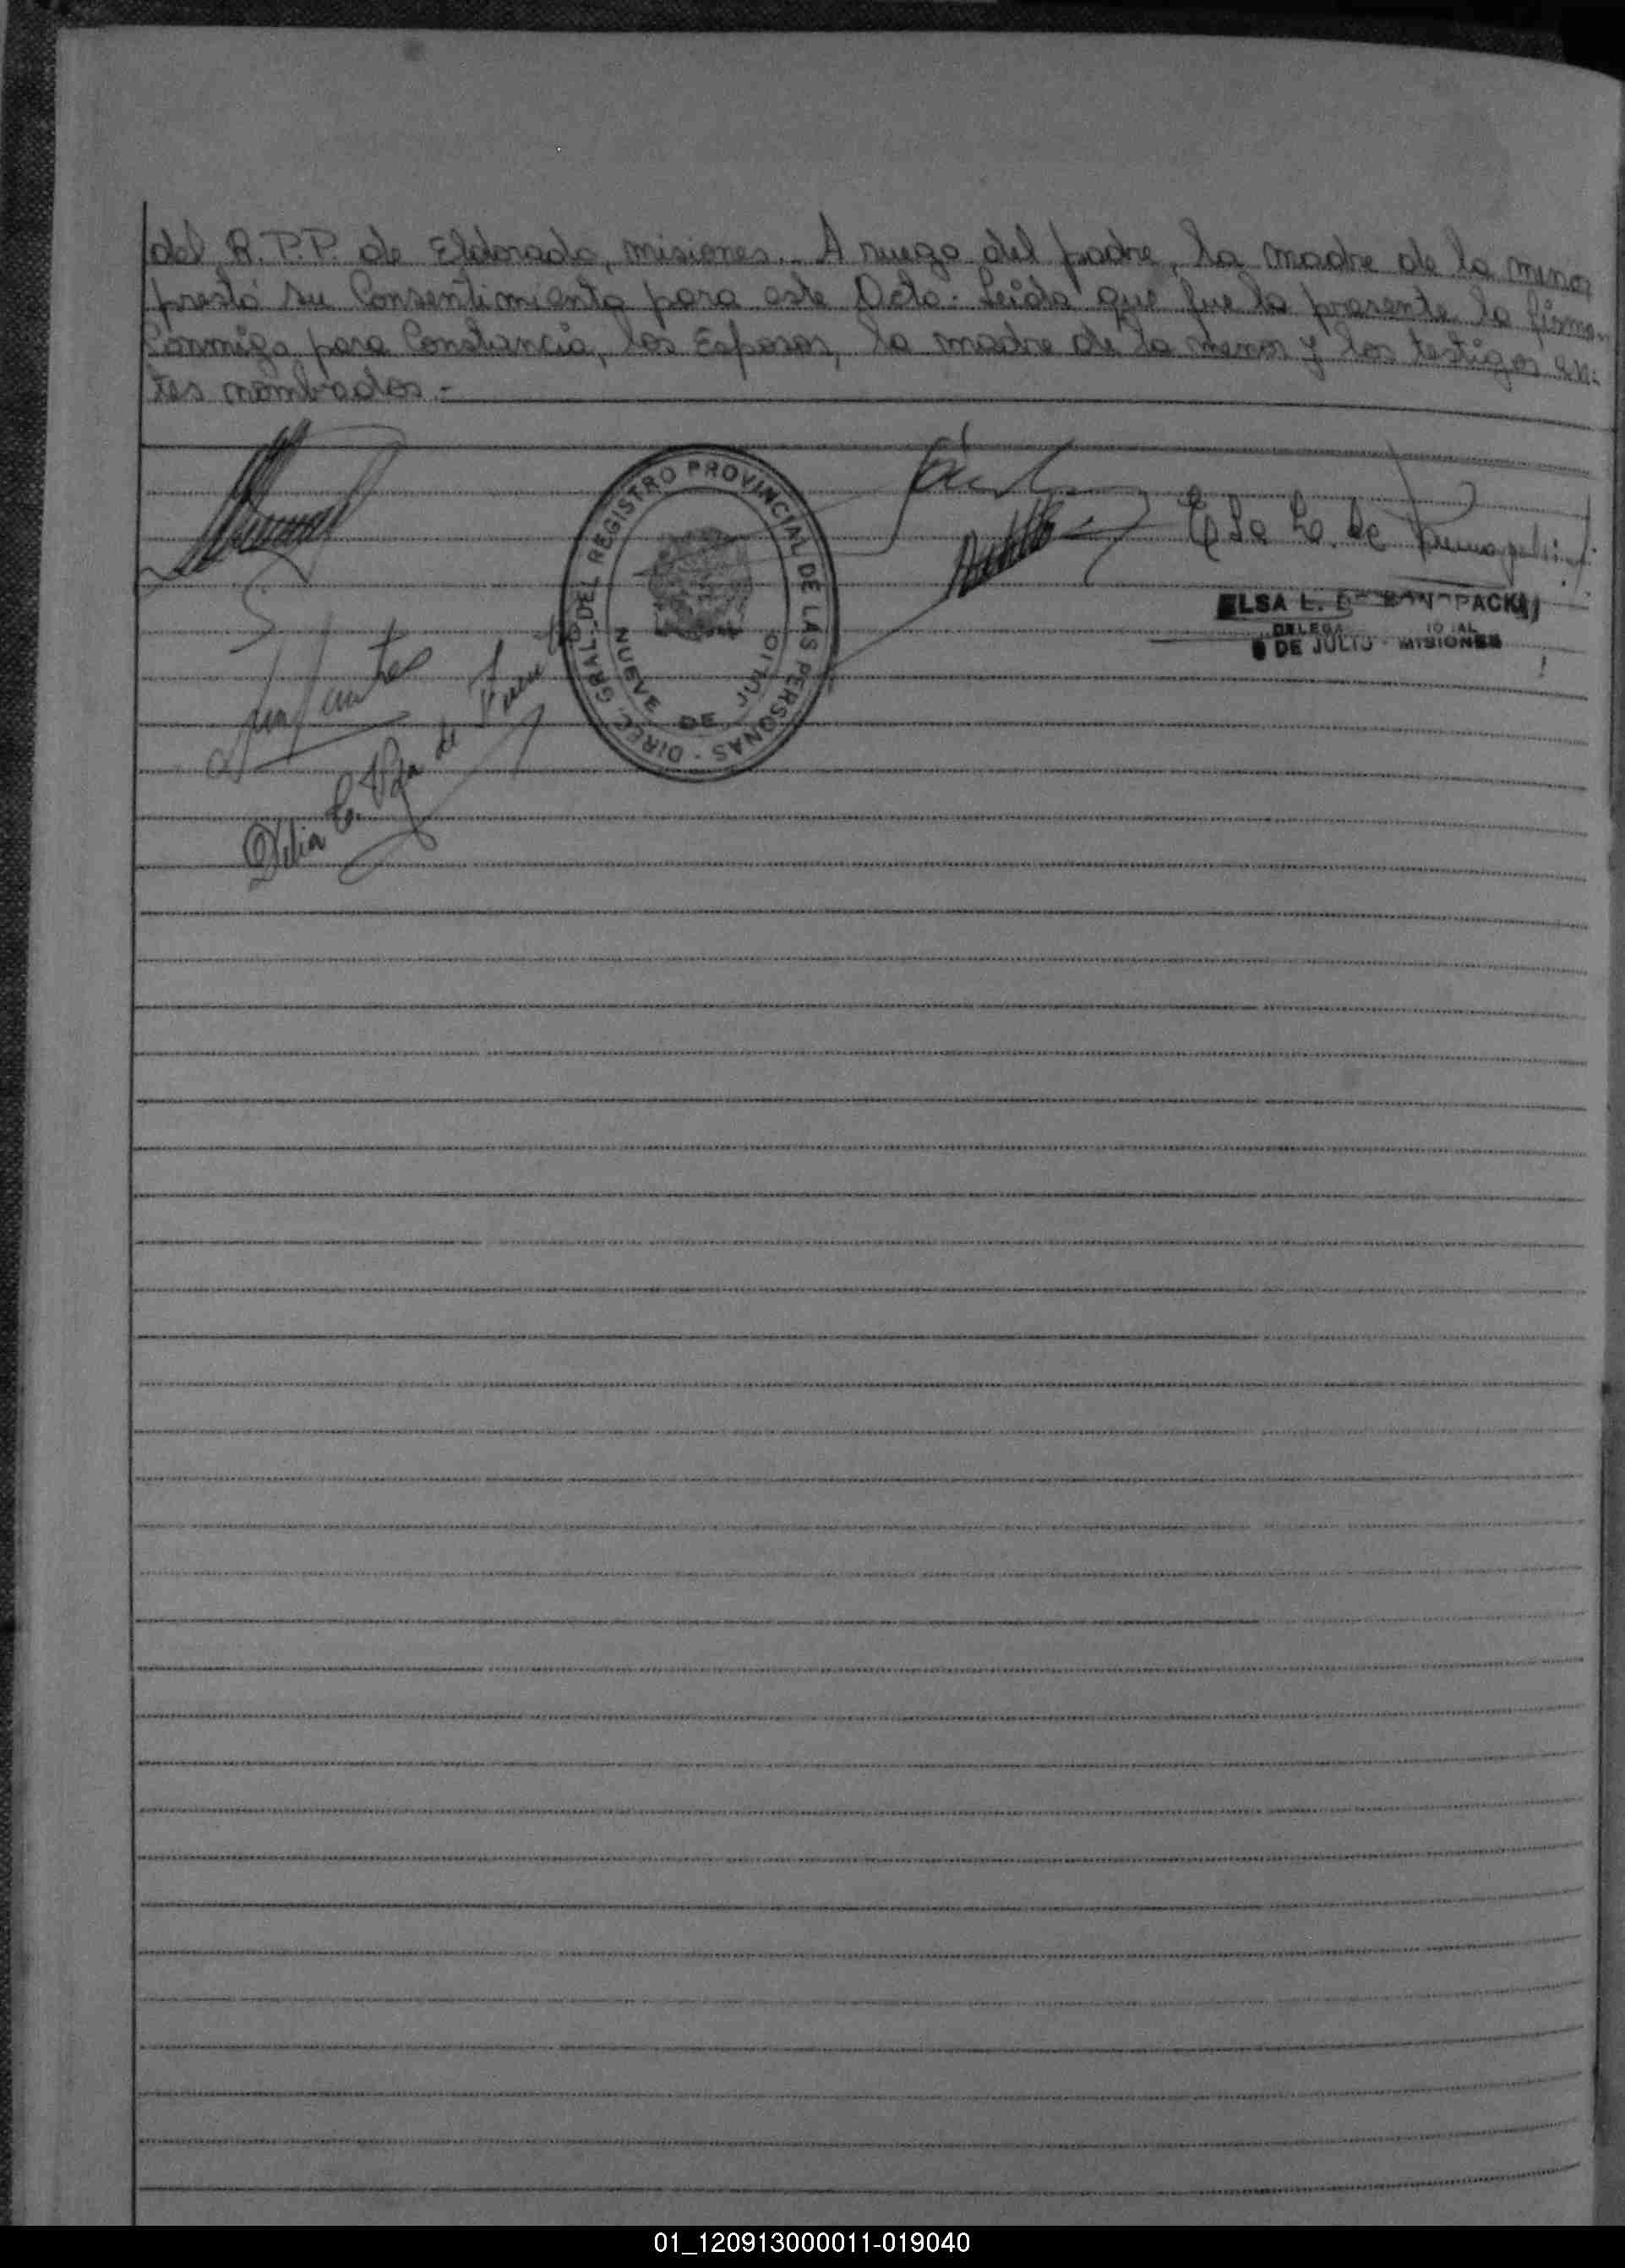 del R.P.P. de Eldorado, misiones.- A ruego del padre, la madre de la menor
prestó su Consentimiento para este Acto.- Leida que fue la presente la firma-
Conmigo para Constancia, los Esposos, la madre de la menor y los testigos an-
tes nombrados.-
DIREC. GRAL. DEL REGISTRO PROVINCIAL DE LAS PERSONAS
NUEVE DE JULIO
Elsa L. de
ELSA L. DE
9 DE JULIO - MISIONES
Delia C. Vda de
01_120913000011-019040